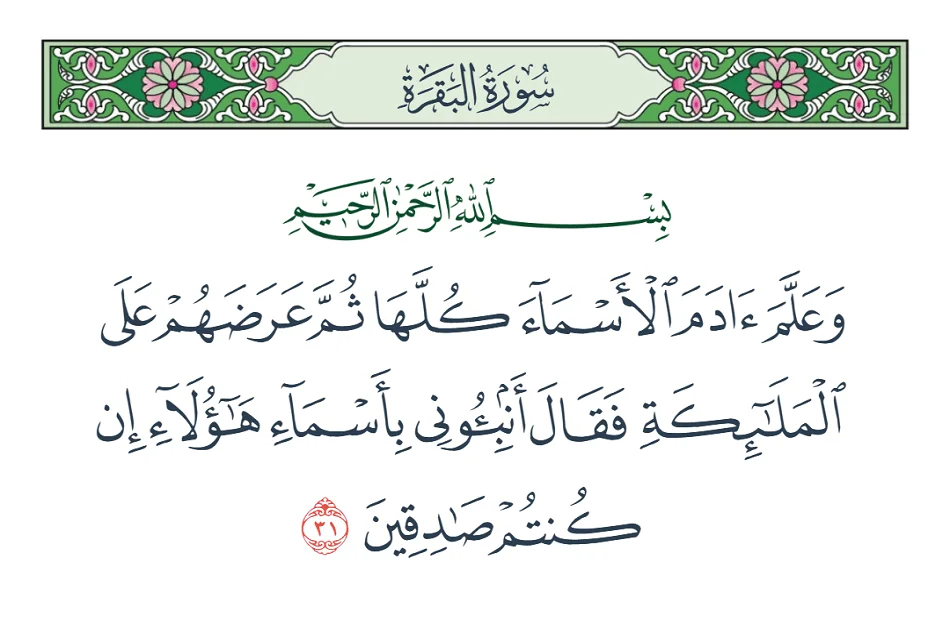 سُورَةُ البَقَرَةِ
بِسْمِ ٱللَّهِ ٱلرَّحْمَٰنِ ٱلرَّحِيمِ
وَعَلَّمَ ءَادَمَ ٱلْأَسْمَآءَ كُلَّهَا ثُمَّ عَرَضَهُمْ عَلَى
ٱلْمَلَٰٓئِكَةِ فَقَالَ أَنۢبِـُٔونِى بِأَسْمَآءِ هَٰٓؤُلَآءِ إِن
كُنتُمْ صَٰدِقِينَ ٣١